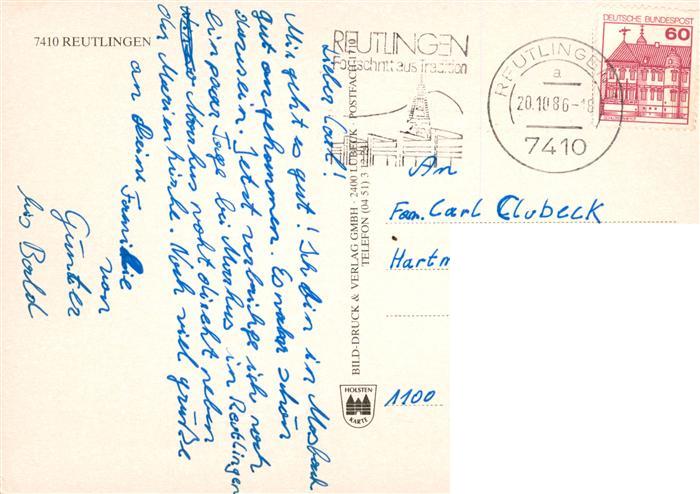 7410 REUTLINGEN
Lieber Carl!
Mir geht es gut! Ich bin in Mosbach
gut angekommen. Es war schön
Jetzt verbringe ich noch
ein paar Tage bei Markus in Reutlingen
Markus wohnt direkt neben
der Marienkirche. Noch viel Grüße
an deine Familie
von
Günter
bis Bald
BILD-DRUCK & VERLAG GMBH · 2400 LÜBECK · POSTFACH 1710
TELEFON (04 51) 3
HOLSTEN
KARTE
REUTLINGEN
Fortschritt aus Tradition
REUTLINGEN
a
20.10.86-18
7410
DEUTSCHE BUNDESPOST
60
An
Fam. Carl Clubeck
Hartm
1100